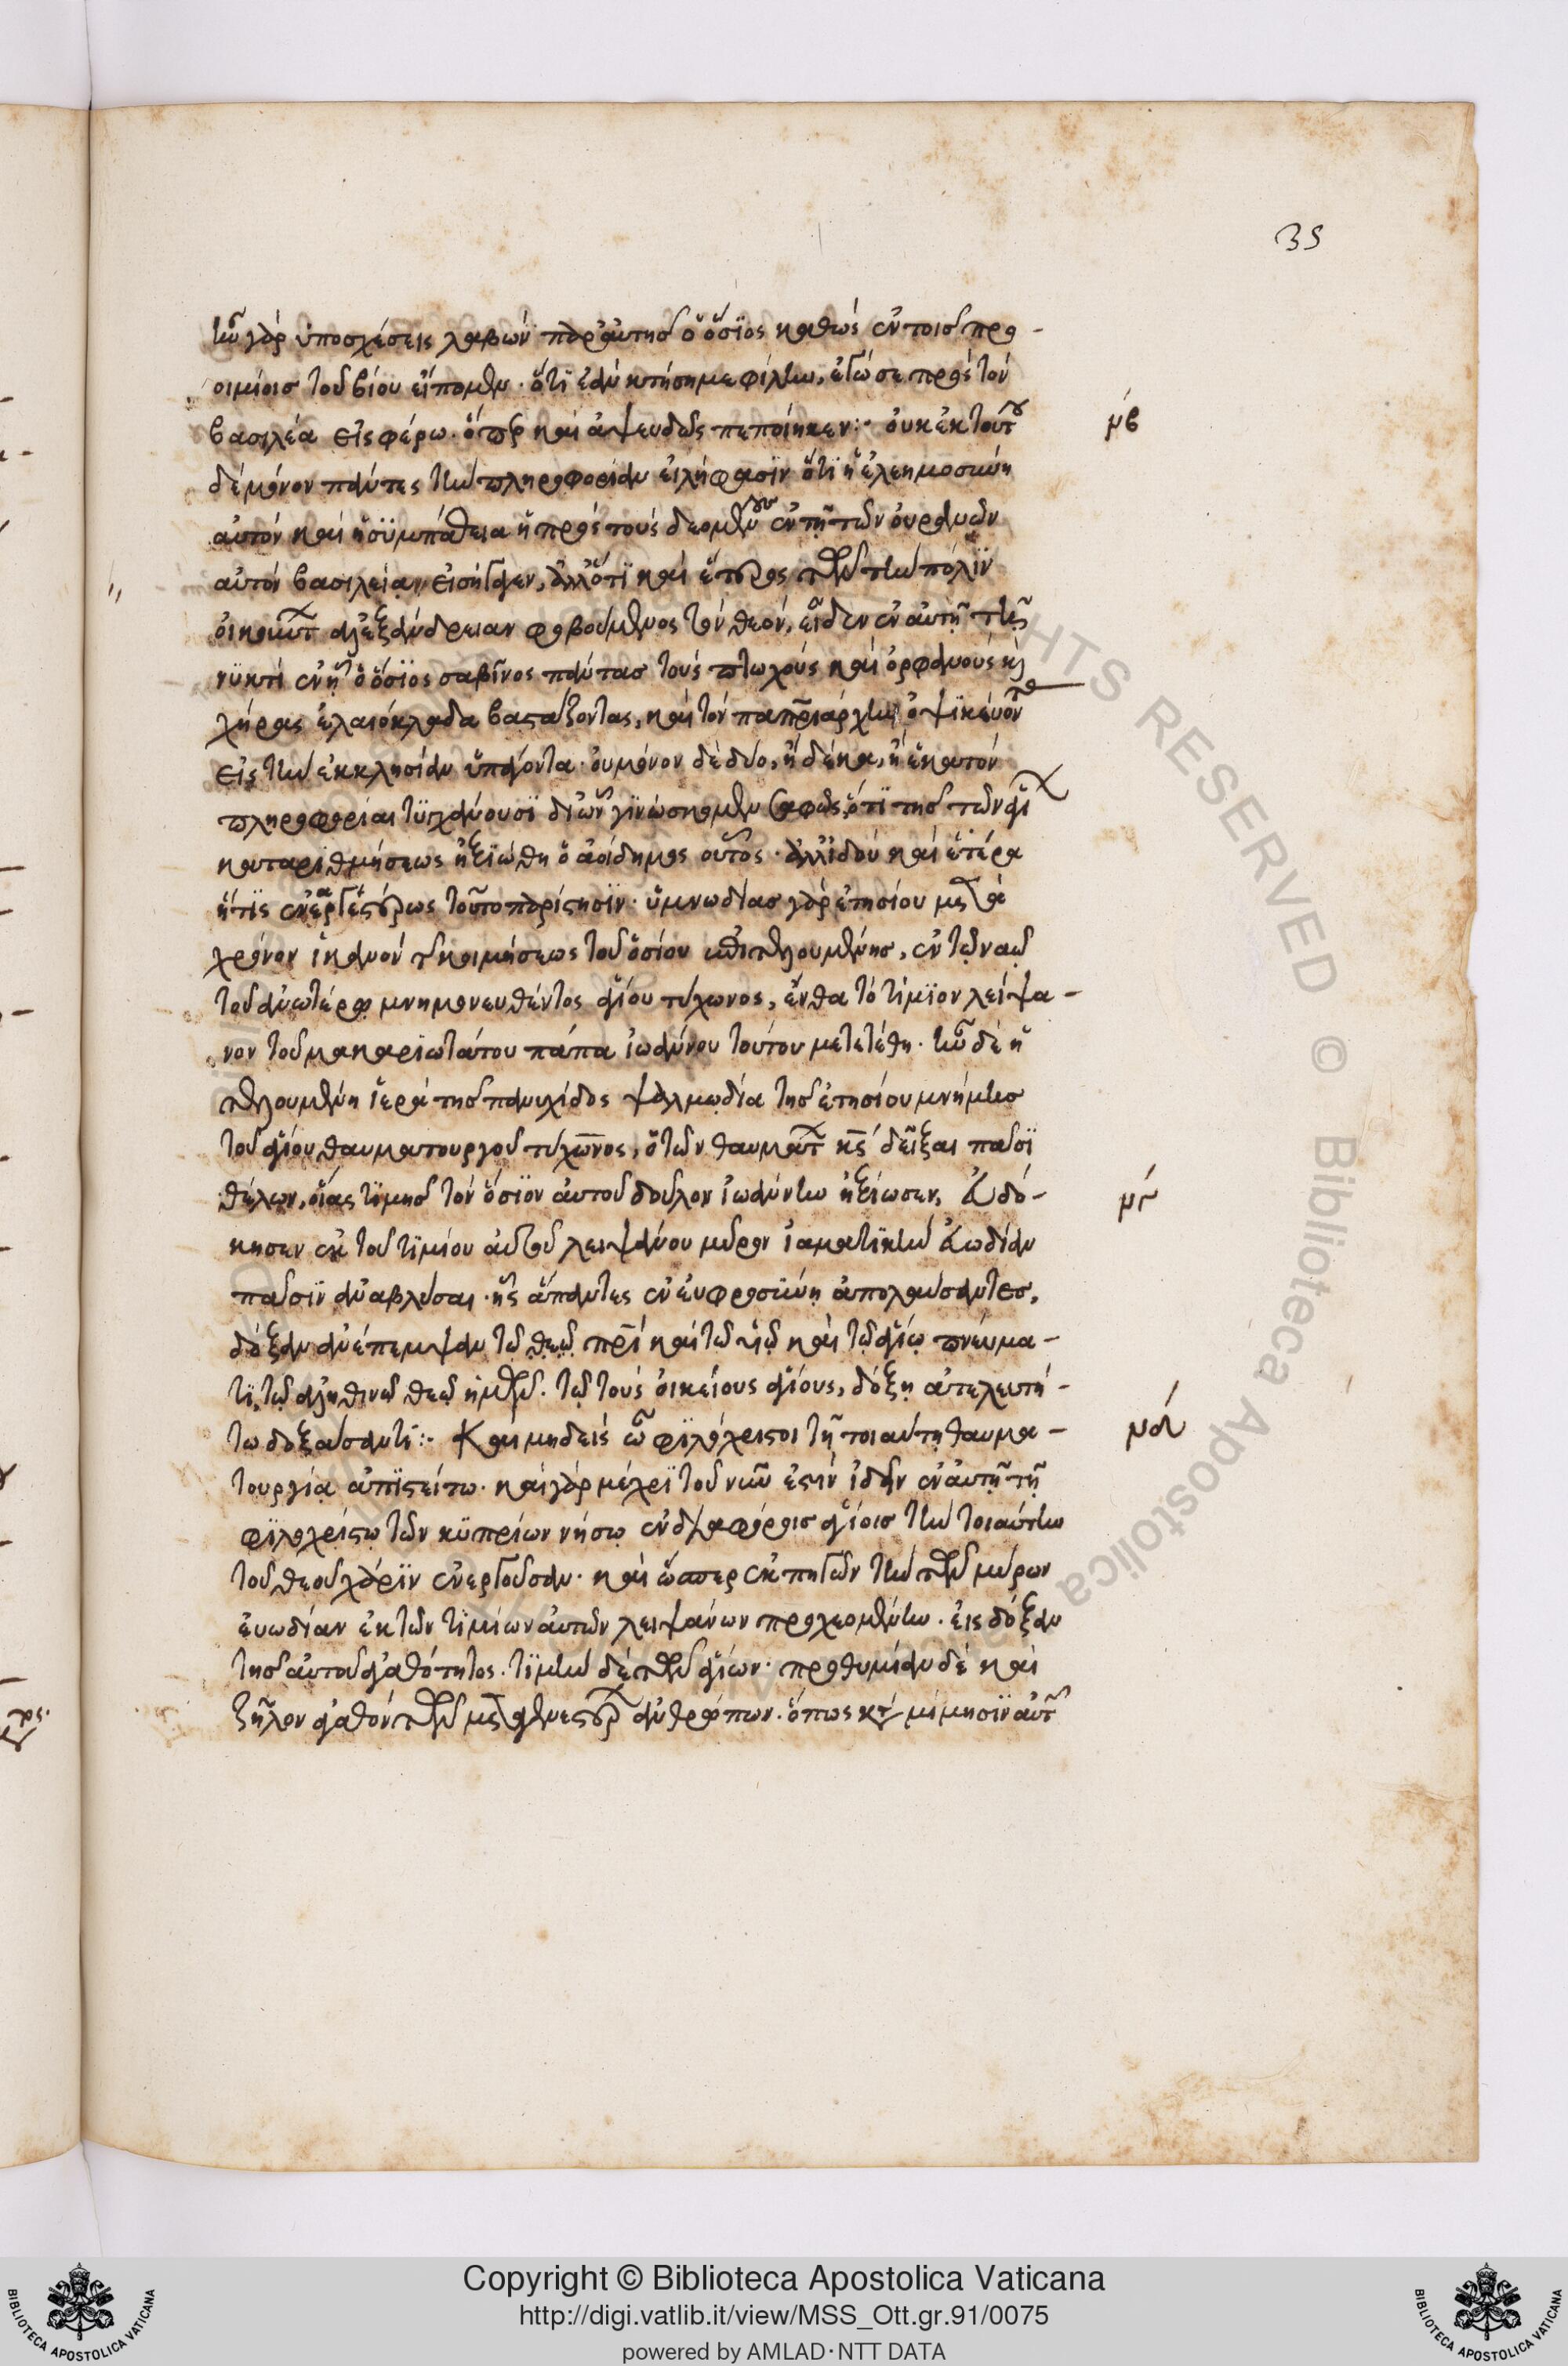 35
ἣν γὰρ ὑποσχέσεις λαβὼν παρ' αὐτῆς ὁ ὅσιος καθὼς ἐν τοῖς προ-
οιμίοις τοῦ βίου εἴπομεν. ὅτι ἐὰν κτήσῃ με φίλην, ἐγώ σε πρὸς τὸν
βασιλέα εἰσφέρω. ὅπερ καὶ ἀψευδῶς πεποίηκεν:· οὐκ ἐκ τούτου μβ
δὲ μόνον πάντες τὴν πληροφορίαν εἰλήφασιν ὅτι ἡ ἐλεημοσύνη
αὐτὸν καὶ ἡ συμπάθεια ἡ πρὸς τοὺς δεομένους ἐν τῇ τῶν οὐρανῶν
αὐτὸν βασιλείᾳ εἰσήγαγεν, ἀλλ' ὅτι καὶ ἕτερος τῶν τὴν πόλιν
οἰκούντων ἀλεξάνδρειαν φοβούμενος τὸν θεόν, εἶδεν ἐν αὐτῇ τῇ
νυκτὶ ἐν ᾗ ὁ ὅσιος σαβῖνος πάντας τοὺς πτωχοὺς καὶ ὀρφανοὺς καὶ
χήρας ἐλαιόκλαδα βαστάζοντας, καὶ τὸν πατριάρχην ὀψικεύοντας
εἰς τὴν ἐκκλησίαν ὑπάγοντα. οὐ μόνον δὲ δύο, ἢ δέκα, ἢ ἑκατὸν
πληροφορίαι τυγχάνουσι δι' ὧν γινώσκομεν σαφῶς, ὅτι τῆς τῶν ἁγίων
καταριθμήσεως ἠξιώθη ὁ ἀοίδιμος οὗτος. ἀλλ' ἰδοὺ καὶ ἑτέρα
ἥτις ἐναργεστέρως τοῦτο παρίστησιν. ὑμνωδίας γὰρ ἐτησίου μετὰ
χρόνον ἱκανὸν τῆς κοιμήσεως τοῦ ὁσίου ἐπιτελουμένης, ἐν τῷ ναῷ
τοῦ ἀνωτέρω μνημονευθέντος ἁγίου τύχωνος, ἔνθα τὸ τίμιον λείψα-
νον τοῦ μακαριωτάτου πάπα ἰωάννου τούτου μετετέθη. ἦν δὲ ἡ
τελουμένη ἱερὰ τῆς παννυχίδος ψαλμωδία τῆς ἐτησίου μνήμης
τοῦ ἁγίου θαυματουργοῦ τύχωνος, ὁ τῶν θαυμάτων κς δεῖξαι πᾶσι
θέλων, οἵας τιμῆς τὸν ὅσιον αὐτοῦ δοῦλον ἰωάννην ἠξίωσεν, εὐδό- μγ
κησεν ἐκ τοῦ τιμίου αὐτοῦ λειψάνου μύρον ἰαματικὴν εὐωδίαν
πᾶσιν ἀναβλύσαι. ἧς ἅπαντες ἐν εὐφροσύνῃ ἀπολαύσαντες,
δόξαν ἀνέπεμψαν τῷ θεῷ πρὶ καὶ τῷ υἱῷ καὶ τῷ ἁγίῳ πνεύμα-
τι, τῷ ἀληθινῷ θεῷ ἡμῶν. τῷ τοὺς οἰκείους ἁγίους, δόξῃ ἀτελευτή-
τω δοξάσαντι:· Καὶ μηδεὶς ὦ φιλόχριστοι τῇ τοιαύτῃ θαυμα- μδ
τουργίᾳ ἀπιστείτω. καὶ γὰρ μέχρι τοῦ νῦν ἐστὶν ἰδεῖν ἐν αὐτῇ τῇ
φιλοχρίστῳ τῶν κυπρίων νήσῳ ἐν διαφόροις ἁγίοις τὴν τοιαύτην
τοῦ θεοῦ χάριν ἐνεργοῦσαν. καὶ ὥσπερ ἐκ πηγῶν τὴν τῶν μύρων
εὐωδίαν ἐκ τῶν τιμίων αὐτῶν λειψάνων προχεομένην. εἰς δόξαν
τῆς αὐτοῦ ἀγαθότητος. τιμὴν δὲ τῶν ἁγίων. προθυμίαν δὲ καὶ
ζῆλον ἀγαθὸν τῶν μεταγενεστέρων ἀνθρώπων. ὅπως κατὰ μίμησιν αὐτῶν
Copyright © Biblioteca Apostolica Vaticana
http://digi.vatlib.it/view/MSS_Ott.gr.91/0075
powered by AMLAD·NTT DATA